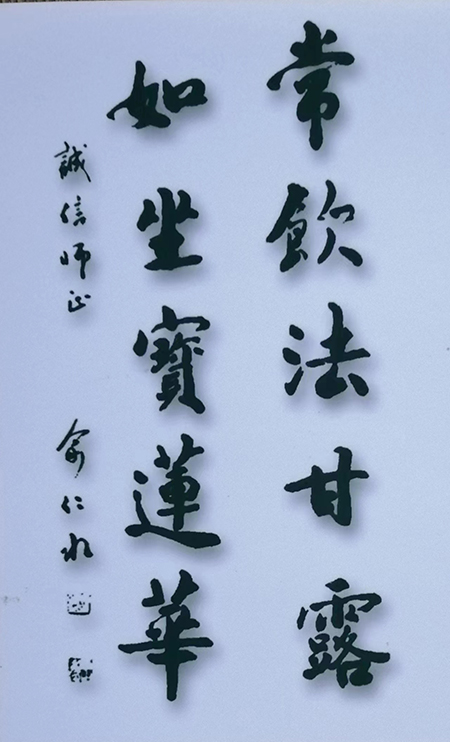 常飲法甘露
如坐寶蓮華
誠信師正
俞仁水